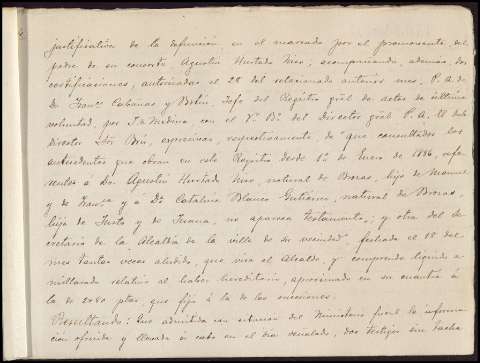 justificativa de la defunción, en el marcado por el promovente, del
padre de su consorte Agustín Hurtado Niso, acompañando, además, dos
certificaciones, autorizadas el 28 del relacionado anterior mes, P. A. de
D. Franco Cabanas y Botín, Jefe del Registro gral de actos de última
voluntad, por J. a Medina con el Vo Bo del Director gral P. A. El Sub
director Ldo Brú, expresivas, respectivamente, de que consultados los
antecedentes que obran en este Registro desde 1o de Enero de 1886, refe
rentes a Dn Agustín Hurtado Niso, natural de Brozas, hijo de Manuel
y de Franca y a Da Catalina Blanco Gutierrez, natural de Brozas,
hija de Justo y de Juana, no aparece testamento; y otra del Se
cretario de la Alcaldía de la villa de su vecindad, fechada el 18 del
mes tantas veces aludido, que visa el Alcalde, y comprende líquido a
millarado relativo al haber hereditario, aproximado en su cuantía á
la de ptas, que fijó á la de las
Resultando: Que admitida con citación del Ministerio fiscal la informa
ción ofrecida y llevada á cabo en el día señalado, dos testigos sin tacha